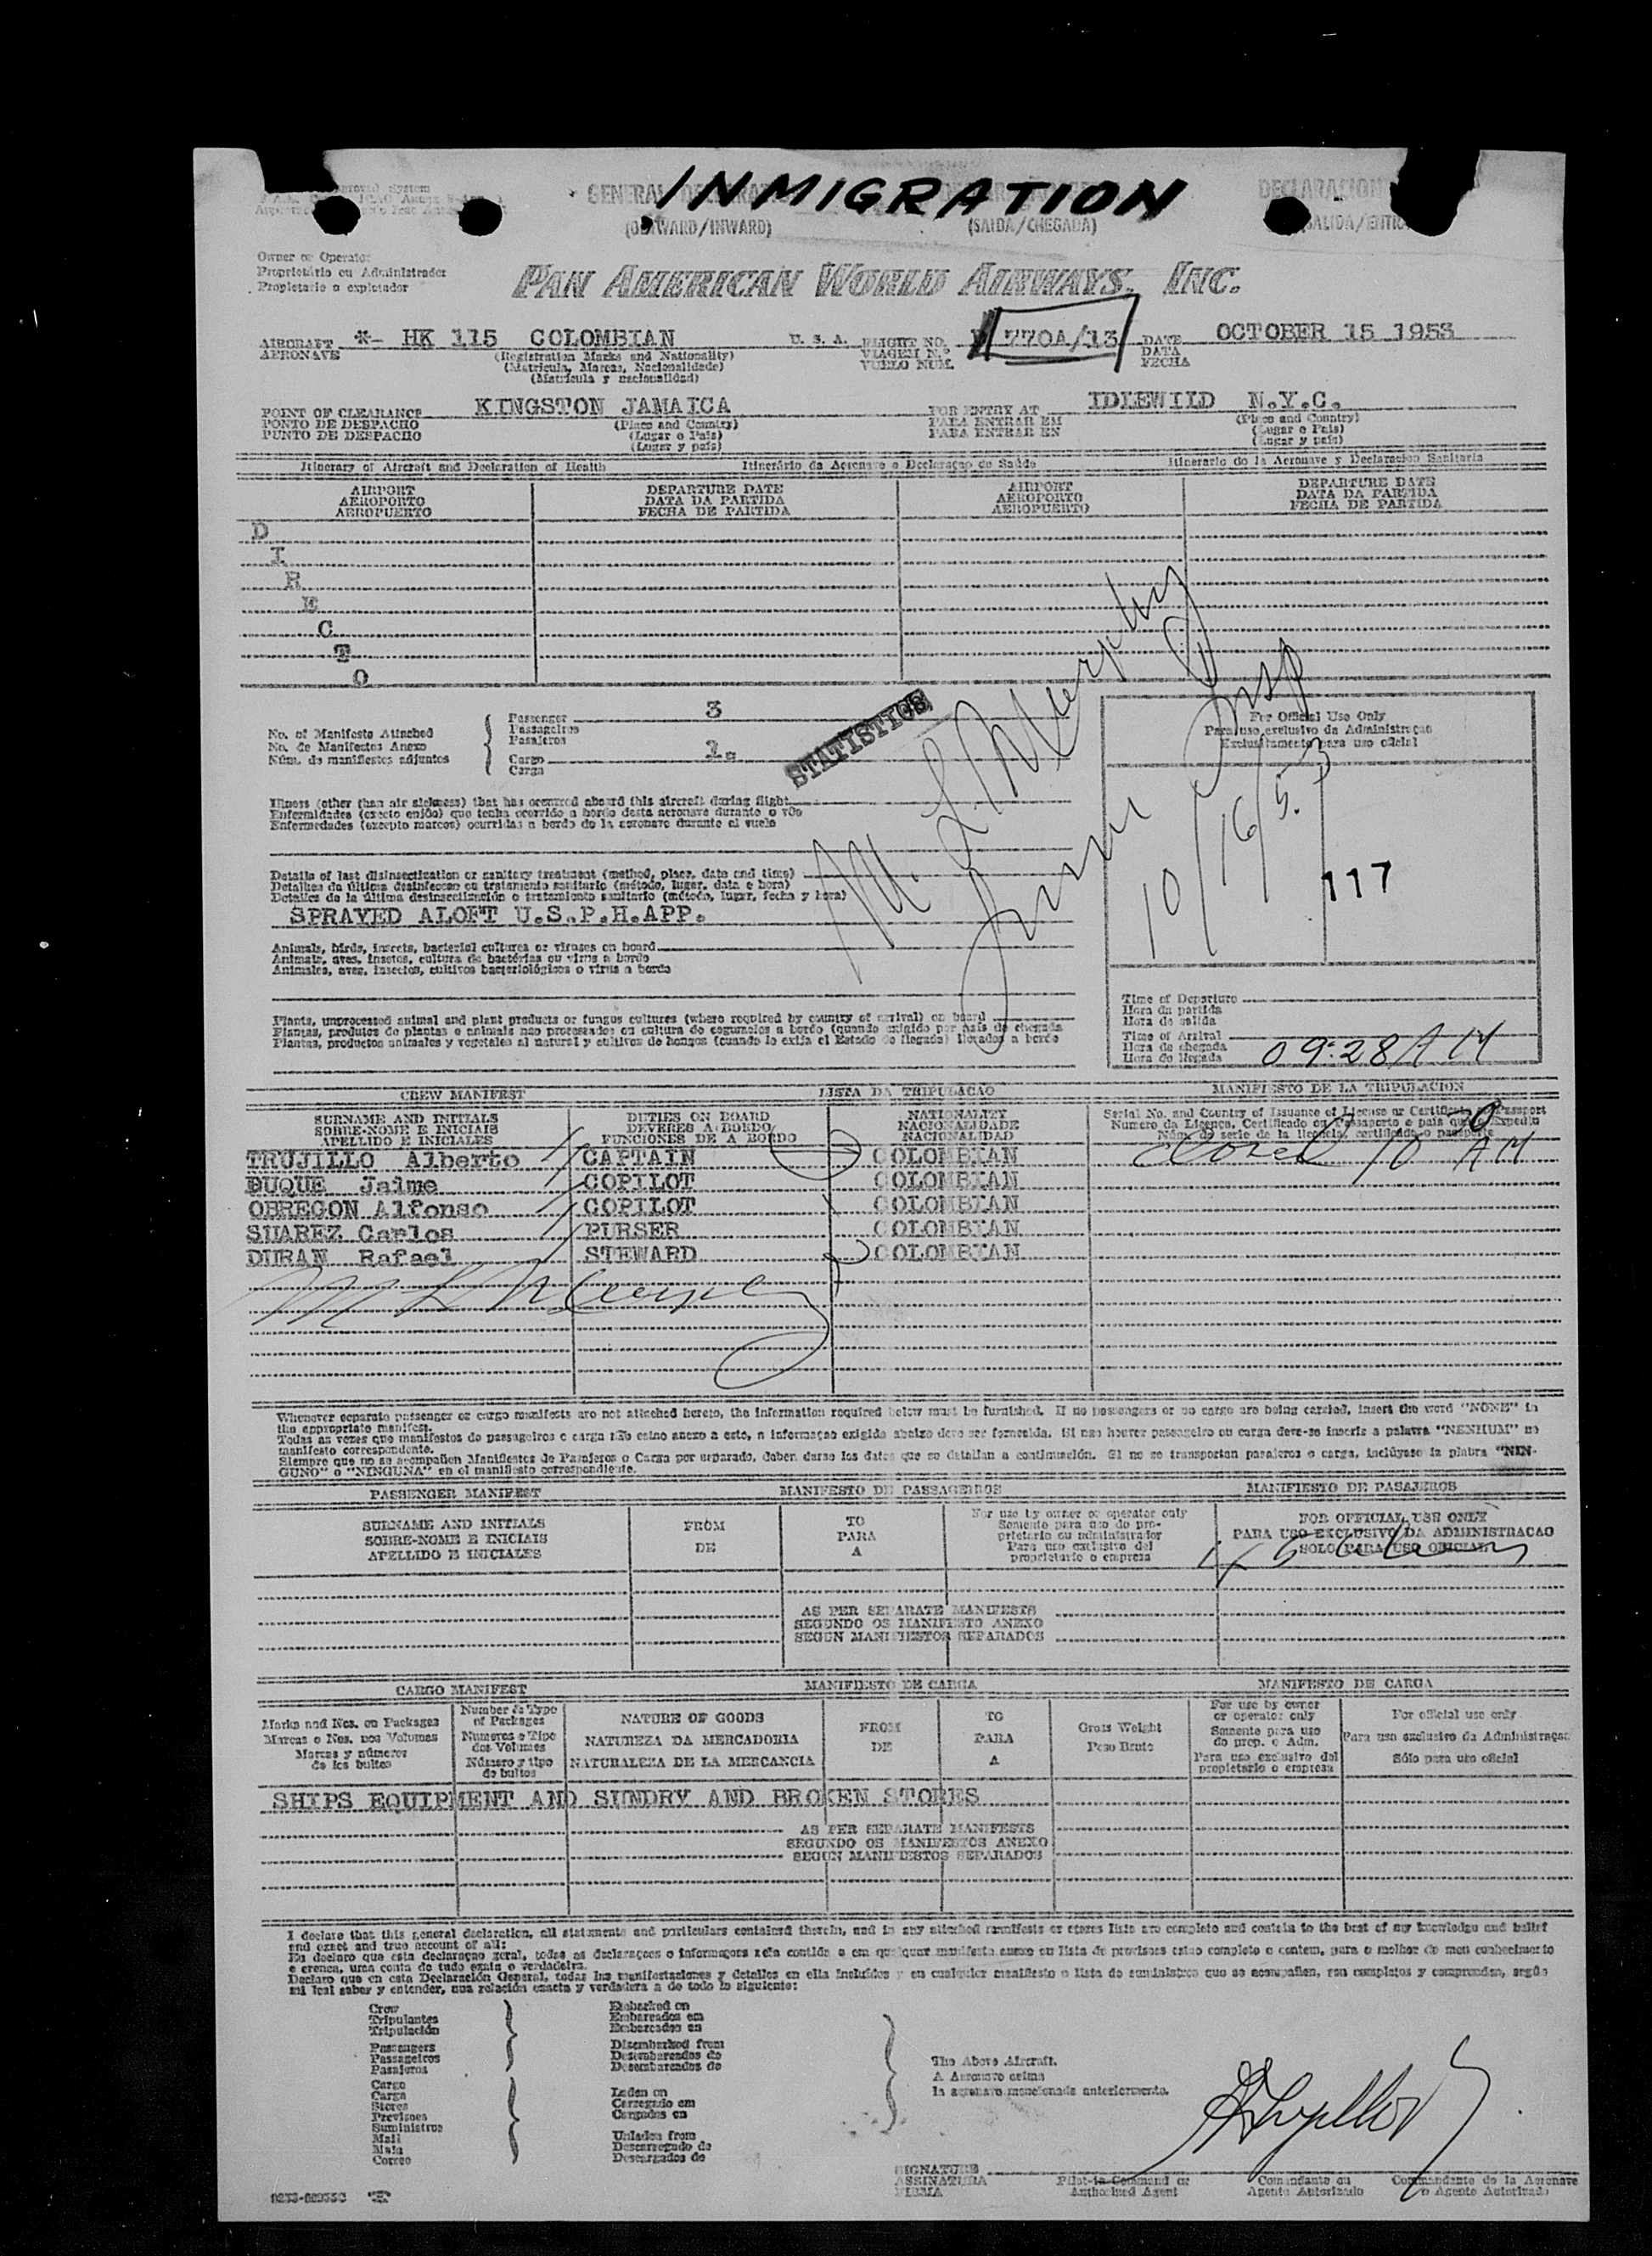 INMIGRATION
(OUTWARD/INWARD) (SAIDA/CHEGADA)
Owner or Operator
Proprietário ou Administrador
Propietario o explotador
PAN AMERICAN WORLD AIRWAYS, INC.
AIRCRAFT *- HK 115 COLOMBIAN U. S. A. FLIGHT NO. 770A/13 DATE OCTOBER 15 1953
AERONAVE (Registration Marks and Nationality) VIAGEM N.º DATA
(Matricula, Marcas, Nacionalidade) VUELO NUM. FECHA
(Matrícula y nacionalidad)
POINT OF CLEARANCE KINGSTON JAMAICA FOR ENTRY AT IDLEWILD N.Y.C.
PONTO DE DESPACHO (Place and Country) PARA ENTRAR EM (Place and Country)
PUNTO DE DESPACHO (Lugar e País) PARA ENTRAR EN (Lugar e País)
(Lugar y país) (Lugar y país)
Itinerary of Aircraft and Declaration of Health Itinerário da Aeronave e Declaraçao de Saúde Itinerario de la Aeronave y Declaracion Sanitaria
AIRPORT DEPARTURE DATE AIRPORT DEPARTURE DATE
AEROPORTO DATA DA PARTIDA AEROPORTO DATA DA PARTIDA
AEROPUERTO FECHA DE PARTIDA AEROPUERTO FECHA DE PARTIDA
D
I
R
E
C
T
O
No. of Manifests Attached
No. de Manifestos Anexo
Núm. de manifiestos adjuntos
Passenger 3
Passageiros
Pasajeros
Cargo 1
Carga
STATISTICS
M. L. Murphy
Immr Insp
10/16/53
For Official Use Only
Para uso exclusivo da Administraçao
Exclusivamente para uso oficial
117
Illness (other than air sickness) that has occurred aboard this aircraft during flight
Enfermidades (exceto enjôo) que tenha ocorrido a bordo desta aeronave durante o vôo
Enfermedades (excepto mareos) ocurridas a bordo de la aeronave durante el vuelo
Details of last disinsectization or sanitary treatment (method, place, date and time)
Detalhes da última desinfeccao ou tratamento sanitario (método, lugar, data e hora)
Detalles de la última desinsectización o tratamiento sanitario (método, lugar, fecha y hora)
SPRAYED ALOFT U.S.P.H.APP.
Animals, birds, insects, bacterial cultures or viruses on board
Animais, aves, insetos, cultura de bactérias ou virus a bordo
Animales, aves, insectos, cultivos bacteriológicos o virus a bordo
Plants, unprocessed animal and plant products or fungus cultures (where required by country of arrival) on board
Plantas, produtos de plantas e animais nao processados ou cultura de cogumelos a bordo (quando exigido por pais de chegada
Plantas, productos animales y vegetales al natural y cultivos de hongos (cuando lo exija el Estado de llegada) llevados a bordo
Time of Departure
Hora da partida
Hora de salida
Time of Arrival
Hora de chegada
Hora de llegada 09:28 AM
CREW MANIFEST LISTA DA TRIPULACAO MANIFIESTO DE LA TRIPULACION
SURNAME AND INITIALS DUTIES ON BOARD NATIONALITY Serial No. and Country of Issuance of License or Certificate or Passport
SOBRE-NOME E INICIAIS DEVERES A BORDO NACIONALIDADE Numero da Licença, Certificado ou Passaporte e pais que o Expediu
APELLIDO E INICIALES FUNCIONES DE A BORDO NACIONALIDAD Núm. de serie de la licencia, certificado o pasaporte
TRUJILLO Alberto CAPTAIN COLOMBIAN 10 AM
DUQUE Jaime COPILOT COLOMBIAN
OBREGON Alfonso COPILOT COLOMBIAN
SUAREZ Carlos PURSER COLOMBIAN
DURAN Rafael STEWARD COLOMBIAN
M L Murphy
Whenever separate passenger or cargo manifests are not attached hereto, the information required below must be furnished. If no passengers or no cargo are being carried, insert the word "NONE" in
the appropriate manifest.
Todas as vezes que manifestos de passageiros e carga não estao anexo a este, a informaçao exigida abaixo deve ser fornecida. Si nao houver passageiro ou carga deve-se inserir a palavra "NENHUM" no
manifesto correspondente.
Siempre que no se acompañen Manifiestos de Pasajeros o Carga por separado, deben darse los datos que se detallan a continuación. Si no se transportan pasajeros o carga, inclúyase la plabra "NIN-
GUNO" o "NINGUNA" en el manifiesto correspondiente.
PASSENGER MANIFEST MANIFESTO DE PASSAGEIROS MANIFIESTO DE PASAJEROS
SURNAME AND INITIALS FROM TO For use by owner or operator only FOR OFFICIAL USE ONLY
SOBRE-NOME E INICIAIS DE PARA Somente para uso do pro- PARA USO EXCLUSIVO DA ADMINISTRACAO
APELLIDO E INICIALES A prietario ou administrador SOLO PARA USO OFICIAL
Para uso exclusivo del
proprietario o empresa
AS PER SEPARATE MANIFESTS
SEGUNDO OS MANIFESTO ANEXO
SEGUN MANIFIESTOS SEPARADOS
CARGO MANIFEST MANIFIESTO DE CARGA MANIFESTO DE CARGA
Marks and Nos. on Packages Number & Type of Packages NATURE OF GOODS FROM TO Gross Weight For use by owner or operator only For official use only
Marcas e Nos. nos Volumes Numeros e Tipo dos Volumes NATUREZA DA MERCADORIA DE PARA Peso Bruto Somente para uso do prop. e Adm. Para uso exclusivo da Administraçao
Marcas y números de los bultos Número y tipo de bultos NATURALEZA DE LA MERCANCIA A Para uso exclusivo del propietario o empresa Sólo para uso oficial
SHIPS EQUIPMENT AND SUNDRY AND BROKEN STORES
AS PER SEPARATE MANIFESTS
SEGUNDO OS MANIFESTOS ANEXO
SEGUN MANIFIESTOS SEPARADOS
I declare that this general declaration, all statements and particulars contained therein, and in any attached manifests or stores lists are complete and contain to the best of my knowledge and belief
and exact and true account of all:
Eu declaro que esta declaraçao geral, todas as declaraçoes e informaçoes nela contida e em qualquer manifesto anexo ou lista de provisoes estao completo e contem, para o melhor do meu conhecimento
e crenca, uma conta de tudo exata e verdadeira.
Declaro que en esta Declaración General, todas las manifestaciones y detalles en ella incluídos y en cualquier manifiesto o lista de suministros que se acompañen, son completos y comprenden, según
mi leal saber y entender, una relación exacta y verdadera a de todo lo siguiente:
Crew
Tripulantes
Tripulación
Passengers
Passageiros
Pasajeros
Cargo
Carga
Stores
Previsoes
Suministros
Mail
Mala
Correo
Embarked on
Embarcados em
Embarcados en
Disembarked from
Desembarcados do
Desembarcados de
Laden on
Carregado em
Cargados en
Unladen from
Descarregado do
Descargados de
The Above Aircraft.
A Aeronave acima
la aeronave mencionada anteriormente.
SIGNATURE
ASSINATURA Pilot-in Command or Comandante ou Commandante de la Aeronave
FIRMA Authorized Agent Agente Autorizado o Agente Autorizado